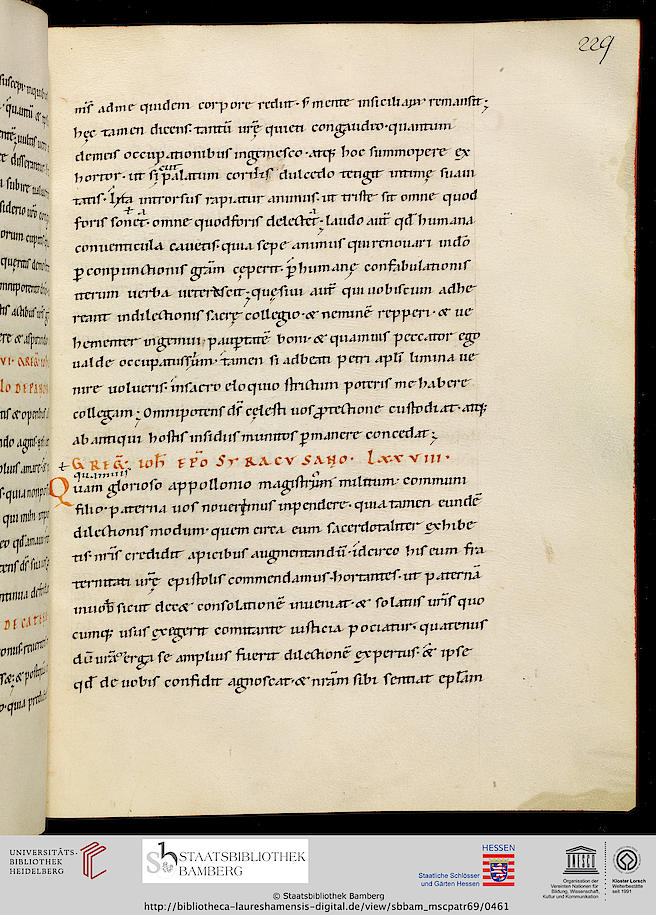 229
nr̄s adme quidem corpore redut · s; mente insicilia remansit;
hęc tamen dicens · tantū urę̄ quieti congaudeo · quantum
demeis occupationibus ingemesco · atq; hoc summopere ex
hortor · ut si palatum cordis dulcedo tetigit intimę suaui
tatis · introrsus rapiatur animus · ut triste sit omne quod
foris sonet · omne quodforis delectet · laudo aut̄ qd̄ humana
conuenticula cauetis · quia sepe animus qui renouari indō
p conpunctionis grām cęperit · p humanę confabulationis
iterum uerba ueterescit; quęsiui aut̄ qui uobiscum adhe
reant indilectionis sacrę collegio · & neminē repperi · & ue
hementer ingemui · paupertatē boni · & quamuis peccator ego
ualde occupatissimū · tamen si adbeati petri apl̄i limina ue
nire uolueris · insacro eloquio strictum poteris me habere
collegam; Omnipotens dš cęlesti uos protectione custodiat · atq;
ab antiqui hostis insidiis munitos pmanere concedat;
GREḠ · ioh̄ EPŌ SYRACUSANO · LXXVIII ·
quamuis
Quam glorioso appollonio magistrum militum communi
filio · paterna uos nouerimus inpendere · quia tamen eundē
dilectionis modum · quem circa eum sacerdotaliter exhibe
tis · nr̄is credidit apicibus augmentandū · idcirco his eum fra
ternitati urę̄ epistolis commendamus · hortantes · ut paternā
inuob̄ sicut dec& consolationē inueniat · & solatiis ur̄is quo
cumq; usus exegerit comitante iusticia pociatur · quatenus
dū urā erga se amplius fuerit dilectionē expertus · & ipse
qd̄ de uobis confidit agnoscat · & nrām sibi sentiat eplām
UNIVERSITÄTS-
BIBLIOTHEK
HEIDELBERG
STAATSBIBLIOTHEK
BAMBERG
HESSEN
Staatliche Schlösser
und Gärten Hessen
Organisation der
Vereinten Nationen für
Bildung, Wissenschaft,
Kultur und Kommunikation
Kloster Lorsch
Welterbestätte
seit 1991
© Staatsbibliothek Bamberg
http://bibliotheca-laureshamensis-digital.de/view/sbbam_mscpatr69/0461